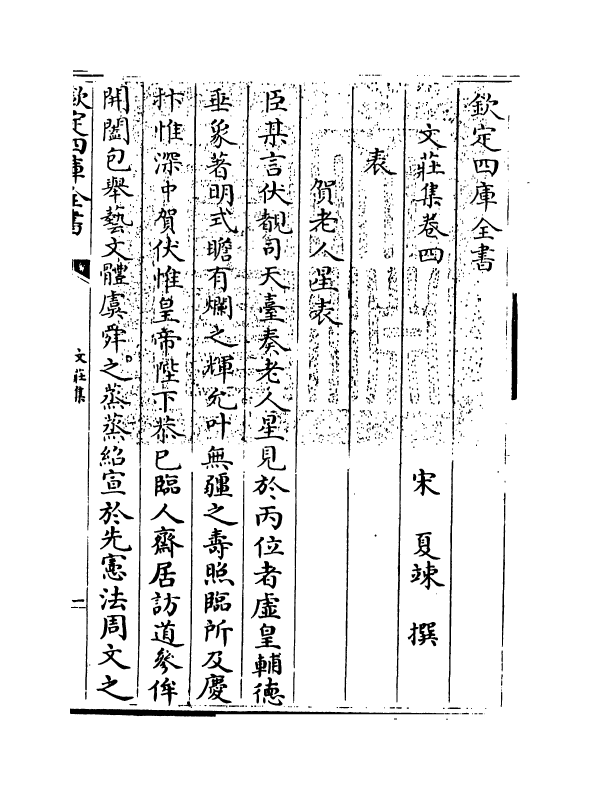 欽定四庫全書
文莊集卷四
宋　夏竦　撰
表
賀老人星表
臣某言伏覩司天臺奏老人星見於丙位者虛皇輔德
垂象著明式瞻有爛之輝允叶無疆之壽照臨所及慶
抃惟深中賀伏惟皇帝陛下恭已臨人齋居訪道參侔
開闔包舉藝文體虞舜之蒸蒸紹宣於先憲法周文之
欽定四庫全書
文莊集